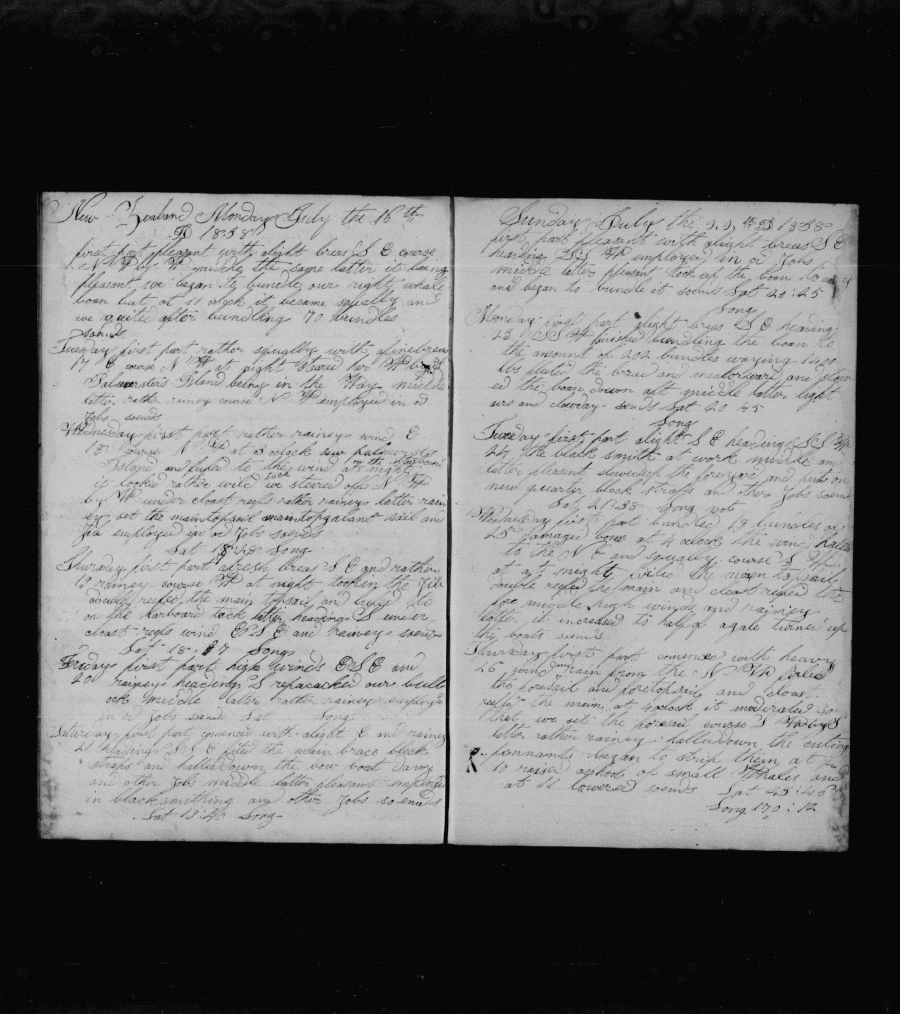 New Zealand Monday July the 16th
AD 1858
first part pleasant with alight breas S E course
N W by W middle the same latter it being
pleasant we began to bundle our right whale
boan but at 11 oclock it became squally and
we quite after bundling 70 bundles
soends
Tuesday first part rather squally with afinebreas
17 E course N W at night steared her W by S
Palmerstors Island being in the Way middle
latter rather rainey course N W employed in od
Jobs soends
Wednesday first part rather rainey wind E
18 course N W at 3 oclock saw palmersts
Island and luged to the wind at night
it looked rather wild we steered of N W
by W under cloast reefs rather rainey latter rain
ey set the maintopsail maintopgalant sail and
Jib employed in od Jobs soends
Lat 18:28 Long
Thursday first part afresh breas S E and rather
19 rainey course W at night tookin the Jib
doubel reefed the main topsail and luged to
on the larboard tack latter heading S under
cloast reefs wind ESE and rainey soends
Lat 18:17 Long
Friday first part high winds ESE and
20 rainey heading S repacacked our bull
ock middle later rather rainey employed
in od Jobs soends Lat Long
Saturday first part comenced with alight E and rainey
21 heading SSE fited the main brace block
straps and halleddown the bow boat Davy
and other Jobs middle latter pleasant employed
in blacksmithing and other Jobs so ends
Lat 19:40 Long
Sunday July the 22th AD 1858
first part pleasant with alight breas S E
heading SSW employed in od Jobs
middle later pleasant took up the boan to
and began to bundle it soends Lat 20:25
Long
Monday first part alight breas S E heading
23 SSW finished bundling the boan to
the amount of 202 bundles waying 1400
lbs slated the bread and meetorward and stow
ed the boan down aft middle latter light
airs and clouday soends Lat 20 45
Long
Tuseday first part alight S E heading SSW
24 the black smith at work middle and
latter pleasant slewedup the foreyard and puts on
new quarter block straps and other Jobs soends
Lat 21:38 Long not
Wednesday first part bundled 19 bundles of
25 damaged bone at 4 oclock the wind halled
to the N E and squally course S W
at night furled the main topsail
double reefed the main and cloast reefed the
fore middle high winds and rainey
latter it increased to half of agale turned up
the boats soends
Thursday first part comenced with heavy
26 wind and rain from the N W furled
the foresail and foretopsail and cloas
reefed the main at 4 oclock it moderated so
that we set the foresail course S W by S
latter rather rainey halleddown the cuting
pennants began to strip them at
10 raised ashoal of small Whales and
at 11 lowered soends Lat 23:46
Long 170:12